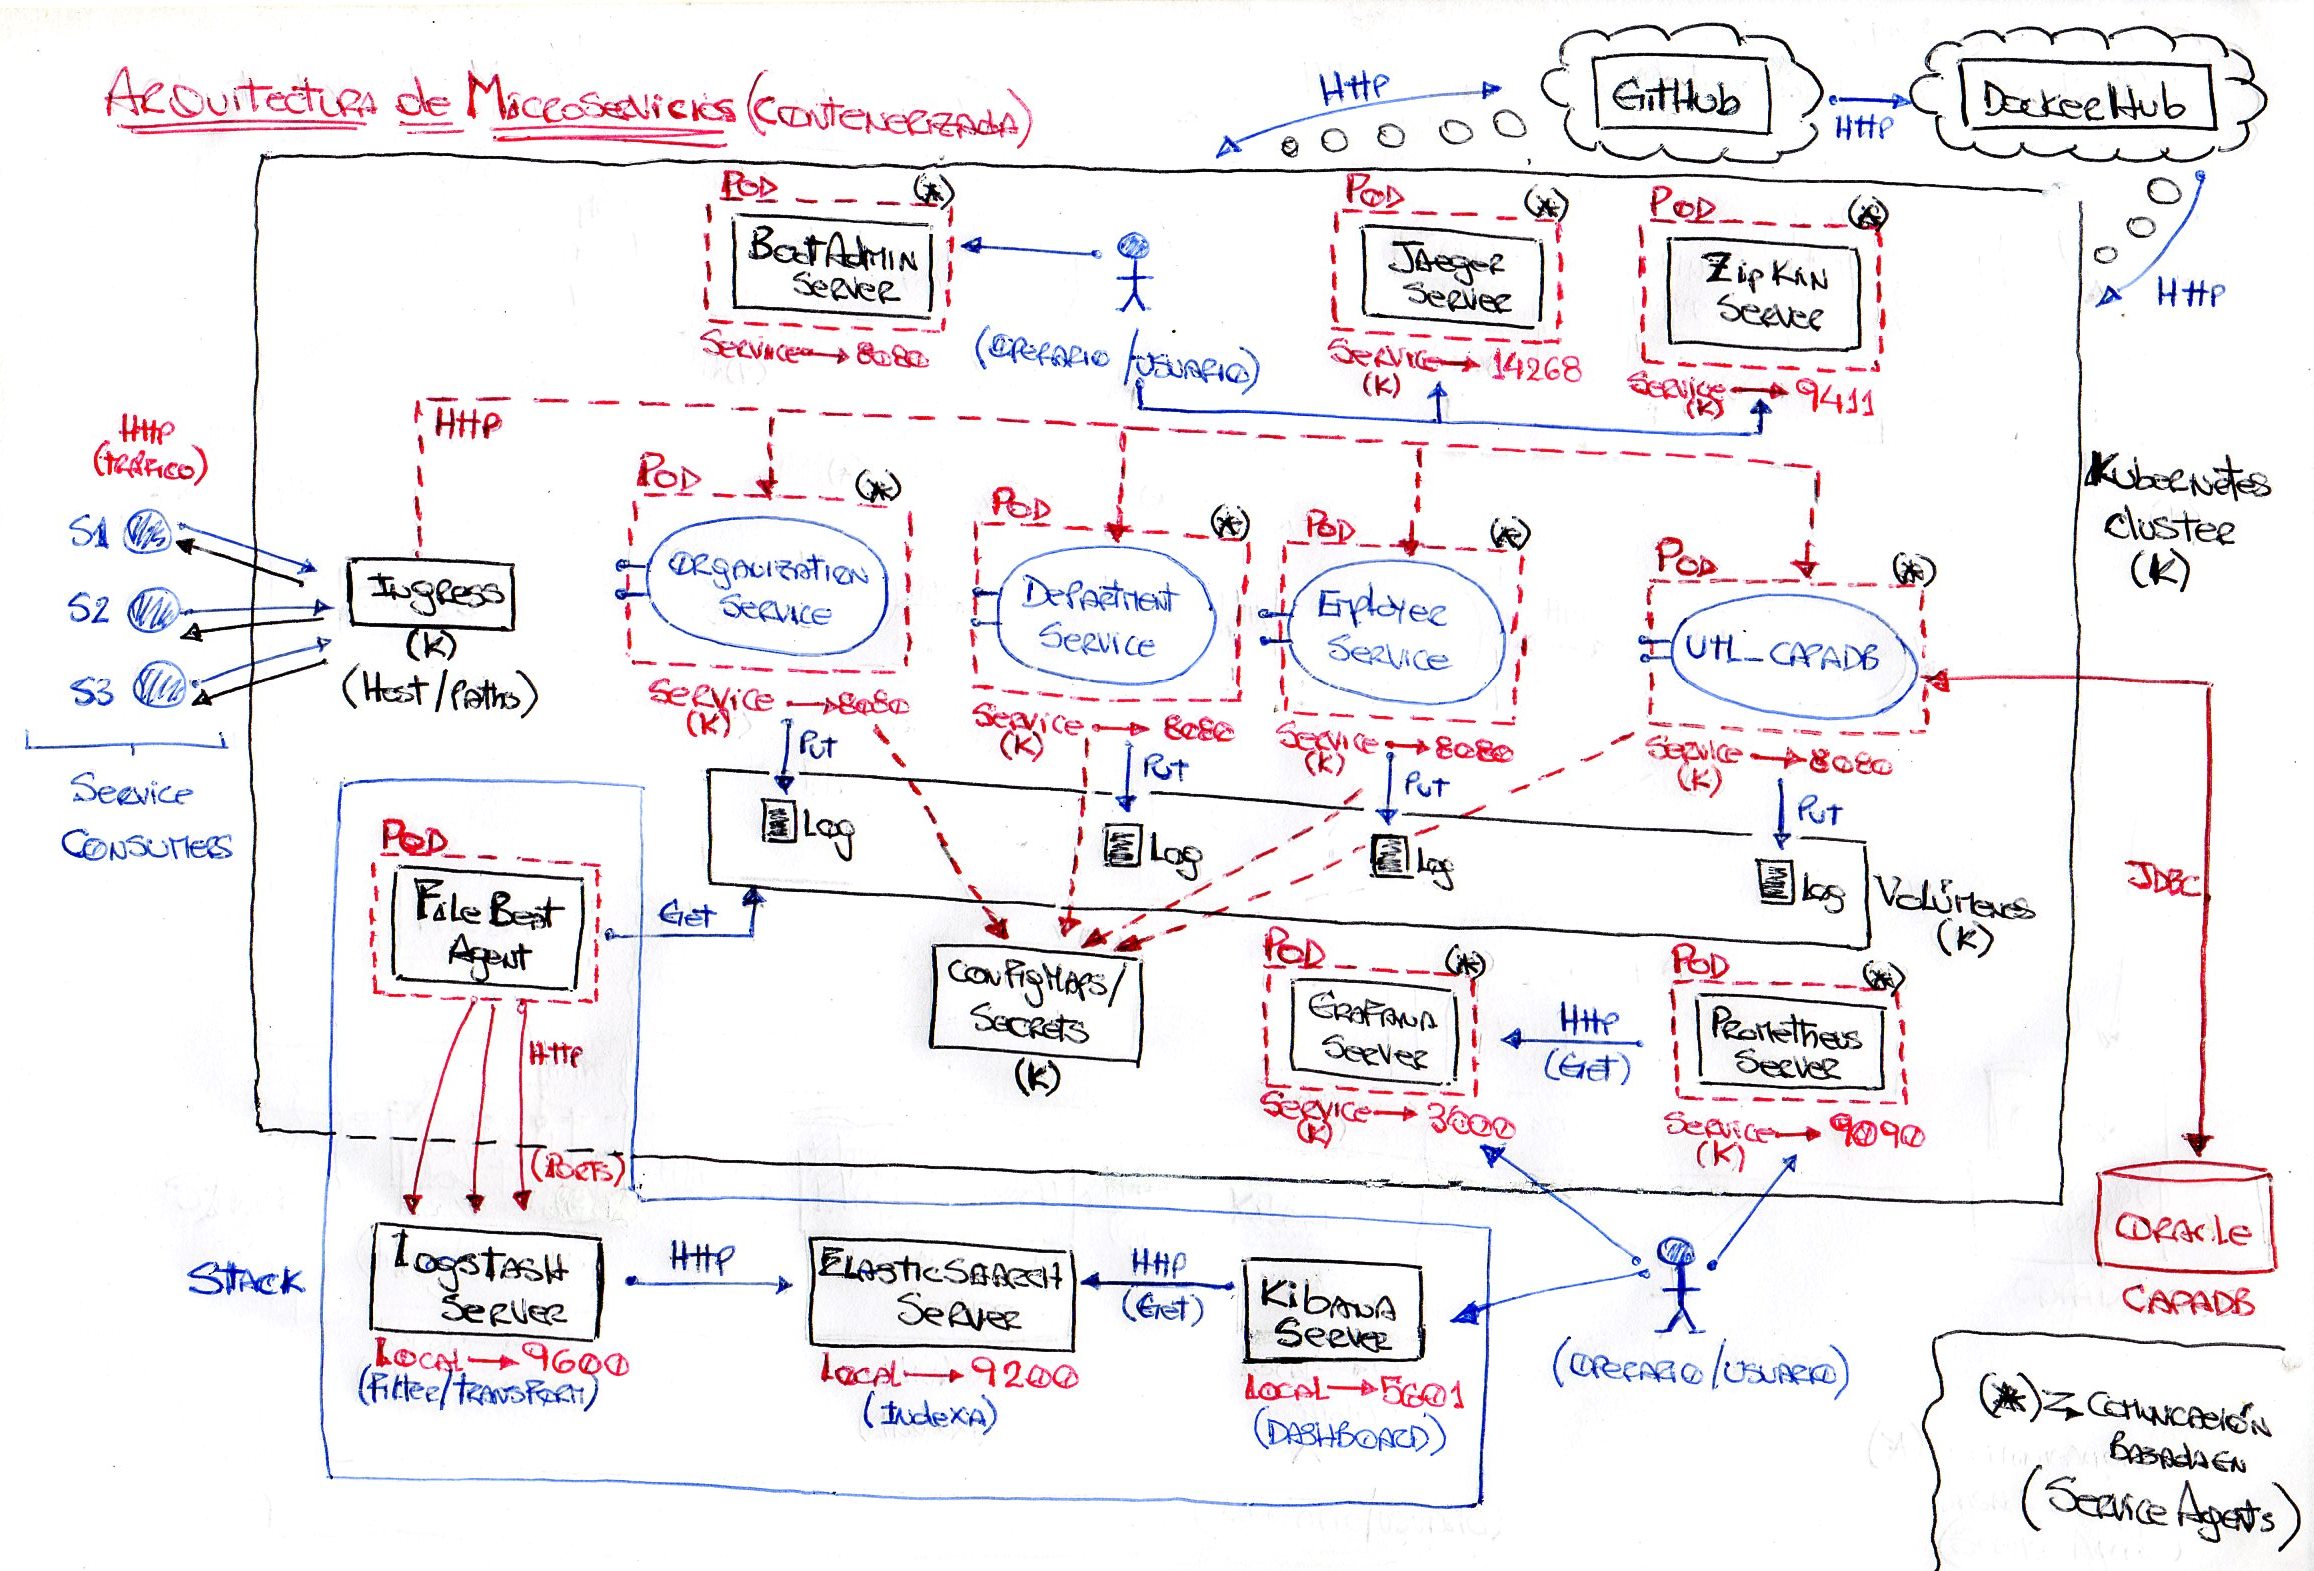 Arquitectura de Microservicios (Contenerizada)
HTTP
GitHub
HTTP
DockerHub
HTTP
POD
(*)
BootAdmin
Server
Service → 8080
(Operario/Usuario)
POD
(*)
Jaeger
Server
Service → 14268
(K)
POD
(*)
ZipKin
Server
Service → 9411
(K)
HTTP
(Tráfico)
S1
S2
S3
Service
Consumers
HTTP
Ingress
(K)
(Host/Paths)
POD
(*)
Organization
Service
Service → 8080
(K)
POD
(*)
Department
Service
Service → 8080
(K)
POD
(*)
Employer
Service
Service → 8080
(K)
POD
(*)
UTL_CAPADB
Service → 8080
(K)
Kubernetes
Cluster
(K)
Put
Put
Put
Put
Log
Log
Log
Log
Volúmenes
(K)
JDBC
POD
FileBeat
Agent
Get
HTTP
(Ports)
ConfigMaps/
Secrets
(K)
POD
(*)
Grafana
Server
Service → 3000
(K)
HTTP
(Get)
POD
(*)
Prometheus
Server
Service → 9090
(K)
Oracle
CAPADB
Stack
Logstash
Server
Local → 9600
(Filter/Transform)
HTTP
ElasticSearch
Server
Local → 9200
(Indexa)
HTTP
(Get)
Kibana
Server
Local → 5601
(Dashboard)
(Operario/Usuario)
(*) → Comunicación
basada en
(Service Agents)